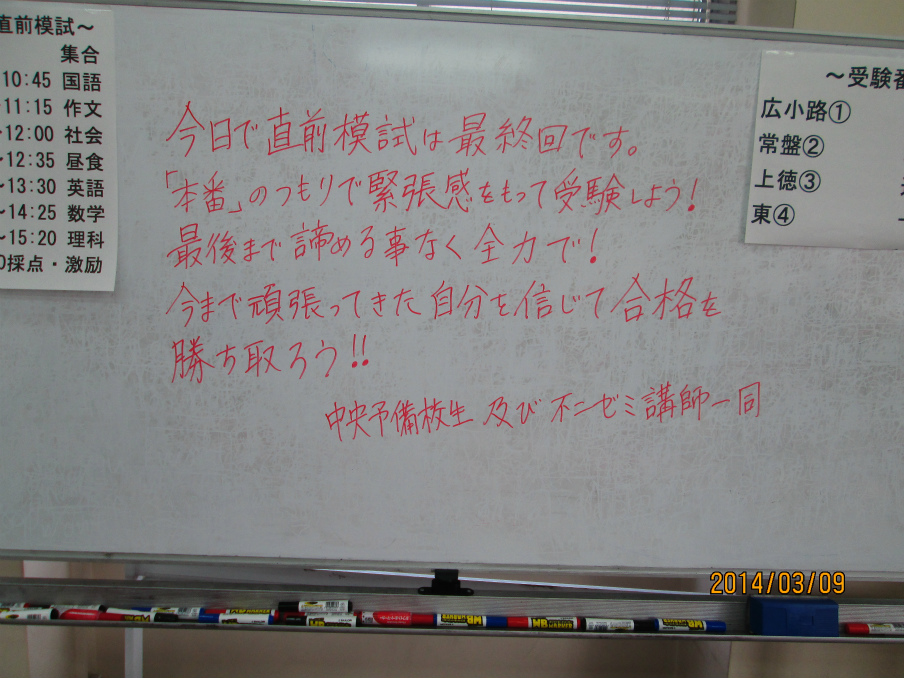 直前模試～
集合
10:45 国語
~11:15 作文
~12:00 社会
~12:35 昼食
~13:30 英語
~14:25 数学
~15:20 理科
0採点・激励
今日で直前模試は最終回です。
「本番」のつもりで緊張感をもって受験しよう！
最後まで諦める事なく全力で！
今まで頑張ってきた自分を信じて合格を
勝ち取ろう！！
中央予備校生 及び 不二ゼミ講師一同
～受験番
広小路①
常盤②
上徳③
東④
2014/03/09